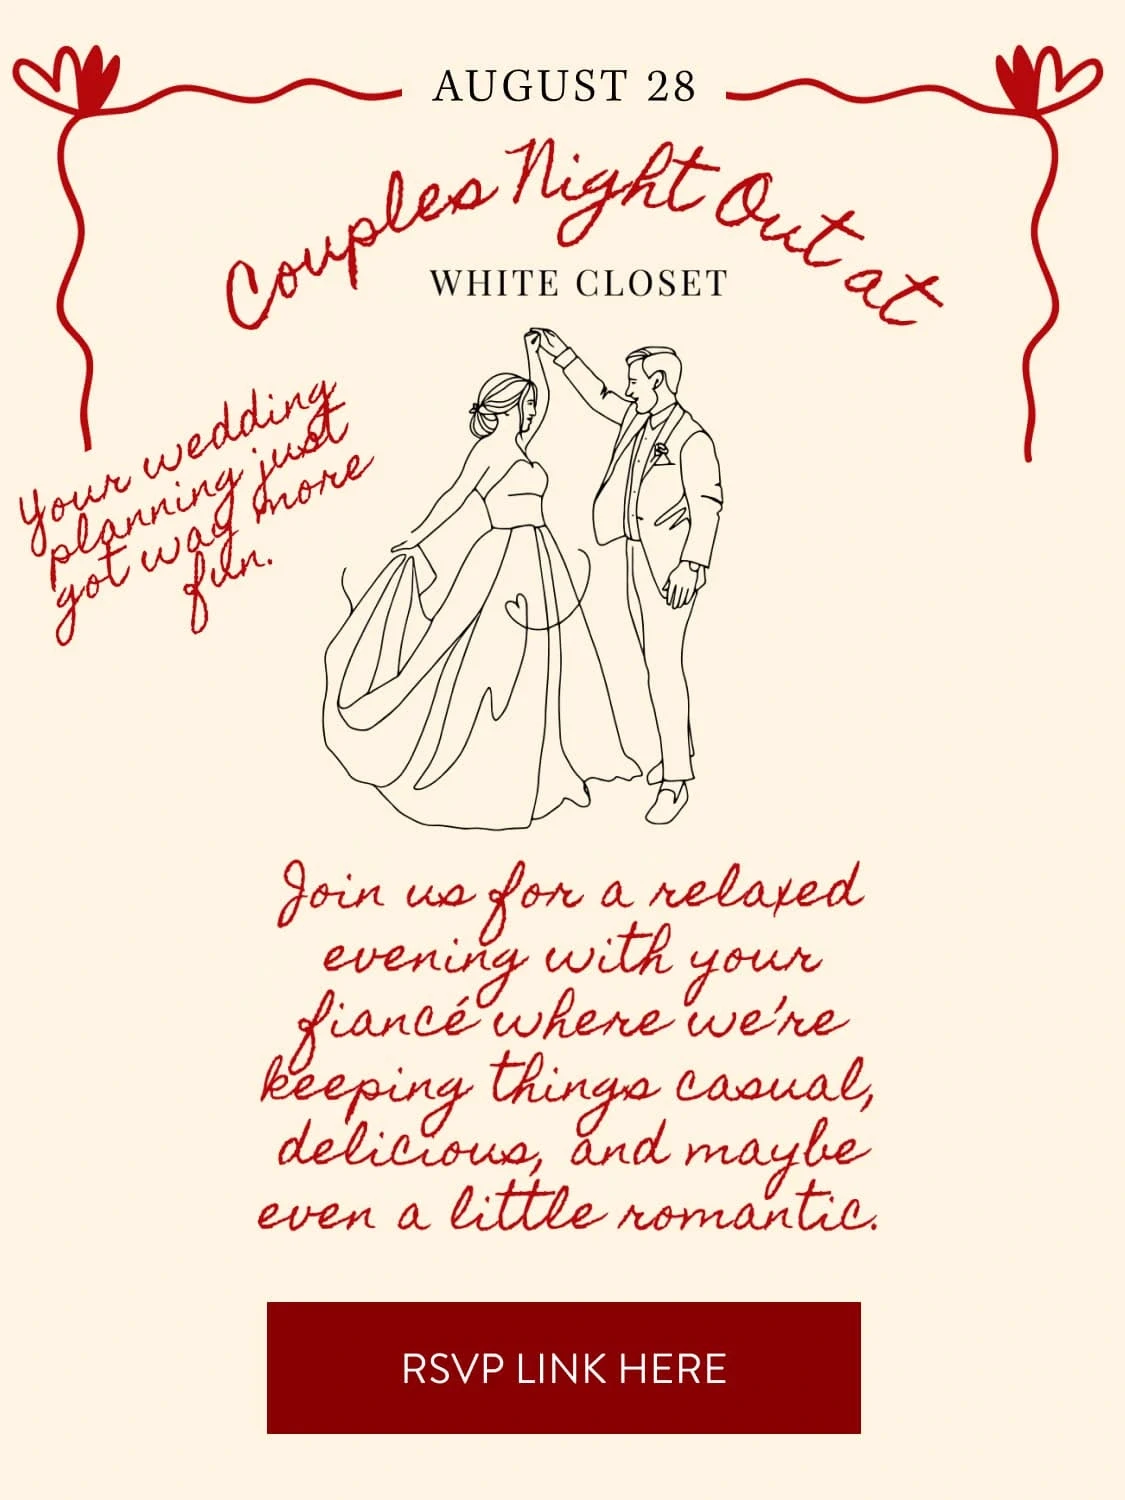 AUGUST 28
Couples Night Out at
WHITE CLOSET
Your wedding
planning just
got way more
fun.
Join us for a relaxed
evening with your
fiancé where we're
keeping things casual,
delicious, and maybe
even a little romantic.
RSVP LINK HERE